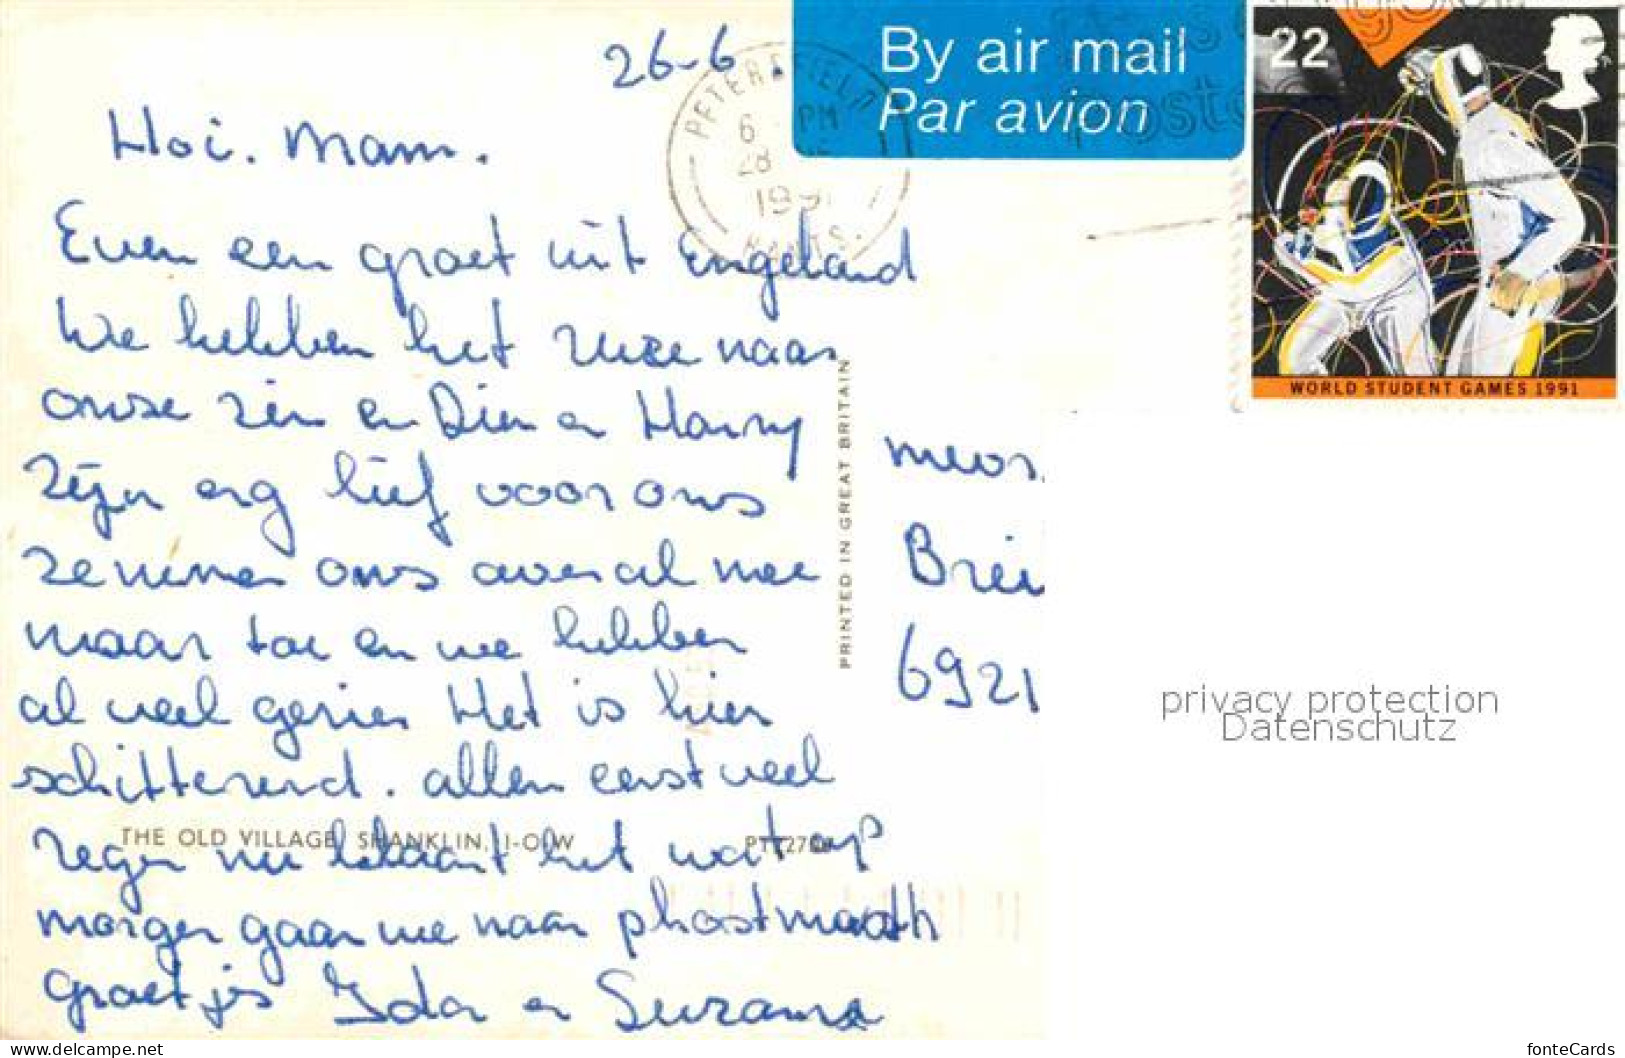 26-6.
By air mail
Par avion
22
PETERSFIELD
6 PM
28
1991
HANTS.
WORLD STUDENT GAMES 1991
Hoi. Mam.
Even een groet uit Engeland
We hebben het zeer naar
onze zin en Dien en Harry
zijn erg lief voor ons
ze nemen ons overal mee
naar toe en we hebben
al veel gezien Het is hier
schitterend. allen eerst veel
regen nu klaart het wat op
morgen gaan we naar phostmouth
groetjes Ida en Suzanne
THE OLD VILLAGE, SHANKLIN, I-O-W
PRINTED IN GREAT BRITAIN
6921
privacy protection
Datenschutz
www.delcampe.net
fonteCards